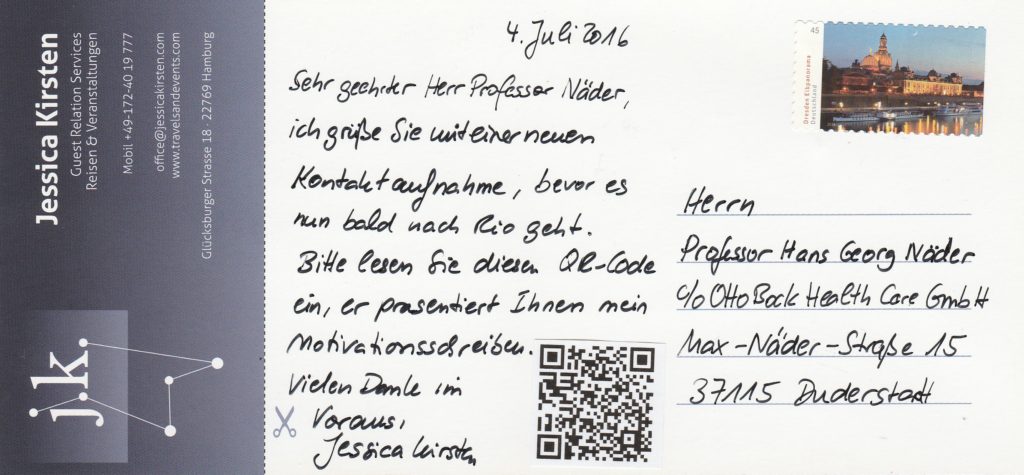 Jessica Kirsten
Guest Relation Services
Reisen & Veranstaltungen
Mobil +49-172-40 19 777
office@jessicakirsten.com
www.travelsandevents.com
Glücksburger Strasse 18 · 22769 Hamburg
j.k.
4. Juli 2016
Sehr geehrter Herr Professor Näder,
ich grüße Sie mit einer neuen
Kontaktaufnahme, bevor es
nun bald nach Rio geht.
Bitte lesen Sie diesen QR-Code
ein, er präsentiert Ihnen mein
Motivationsschreiben.
Vielen Dank im
Voraus,
Jessica Kirsten
45
Dresden Elbpanorama
Deutschland
Herrn
Professor Hans Georg Näder
c/o Otto Bock Health Care GmbH
Max-Näder-Straße 15
37115 Duderstadt